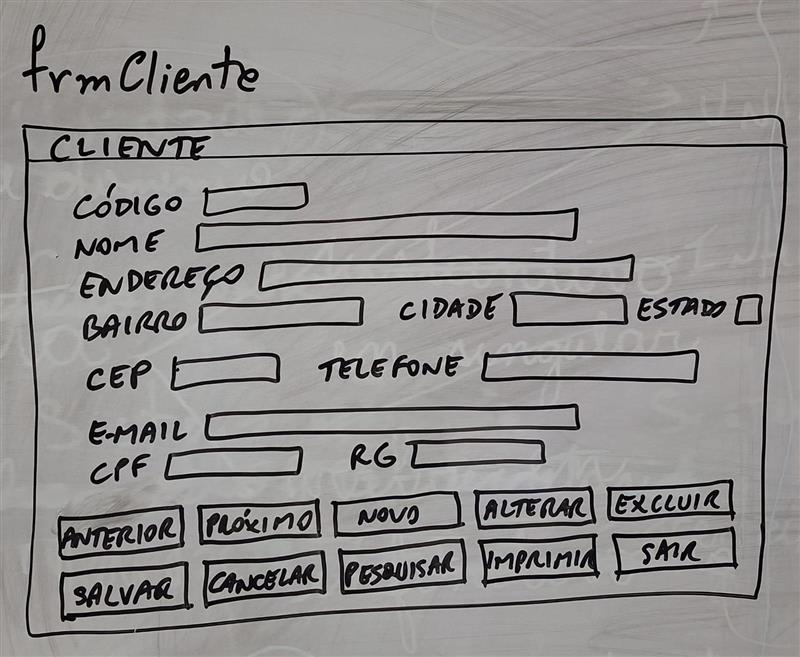 frmCliente
CLIENTE
CÓDIGO
NOME
ENDEREÇO
BAIRRO CIDADE ESTADO
CEP TELEFONE
E-MAIL
CPF RG
ANTERIOR PRÓXIMO NOVO ALTERAR EXCLUIR
SALVAR CANCELAR PESQUISAR IMPRIMIR SAIR